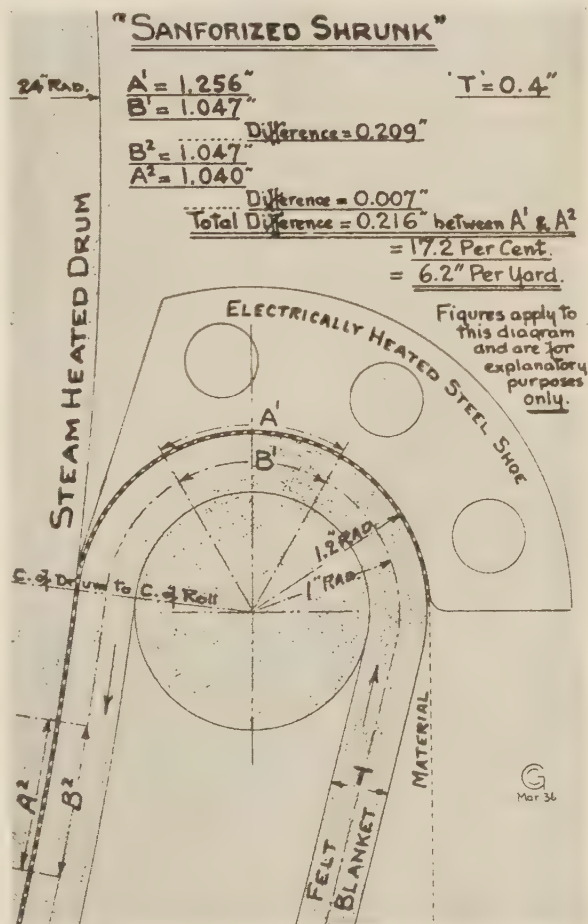 "SANFORIZED SHRUNK"
24" RAD.
A¹ = 1.256"
'T' = 0.4"
B¹ = 1.047"
Difference = 0.209"
B² = 1.047"
A² = 1.040"
Difference = 0.007"
Total Difference = 0.216" between A¹ & A²
= 17.2 Per Cent.
= 6.2" Per Yard.
Figures apply to
this diagram
and are for
explanatory
purposes
only.
STEAM HEATED DRUM
ELECTRICALLY HEATED STEEL SHOE
A¹
B¹
1.2" RAD.
1" RAD.
C. of Drum to C. of Roll
A²
B²
T
FELT
BLANKET
MATERIAL
CG
Mar 36